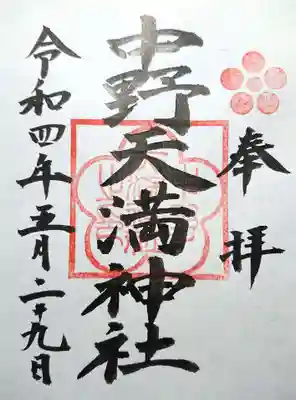 奉拝
中野天満神社
令和四年五月二十九日